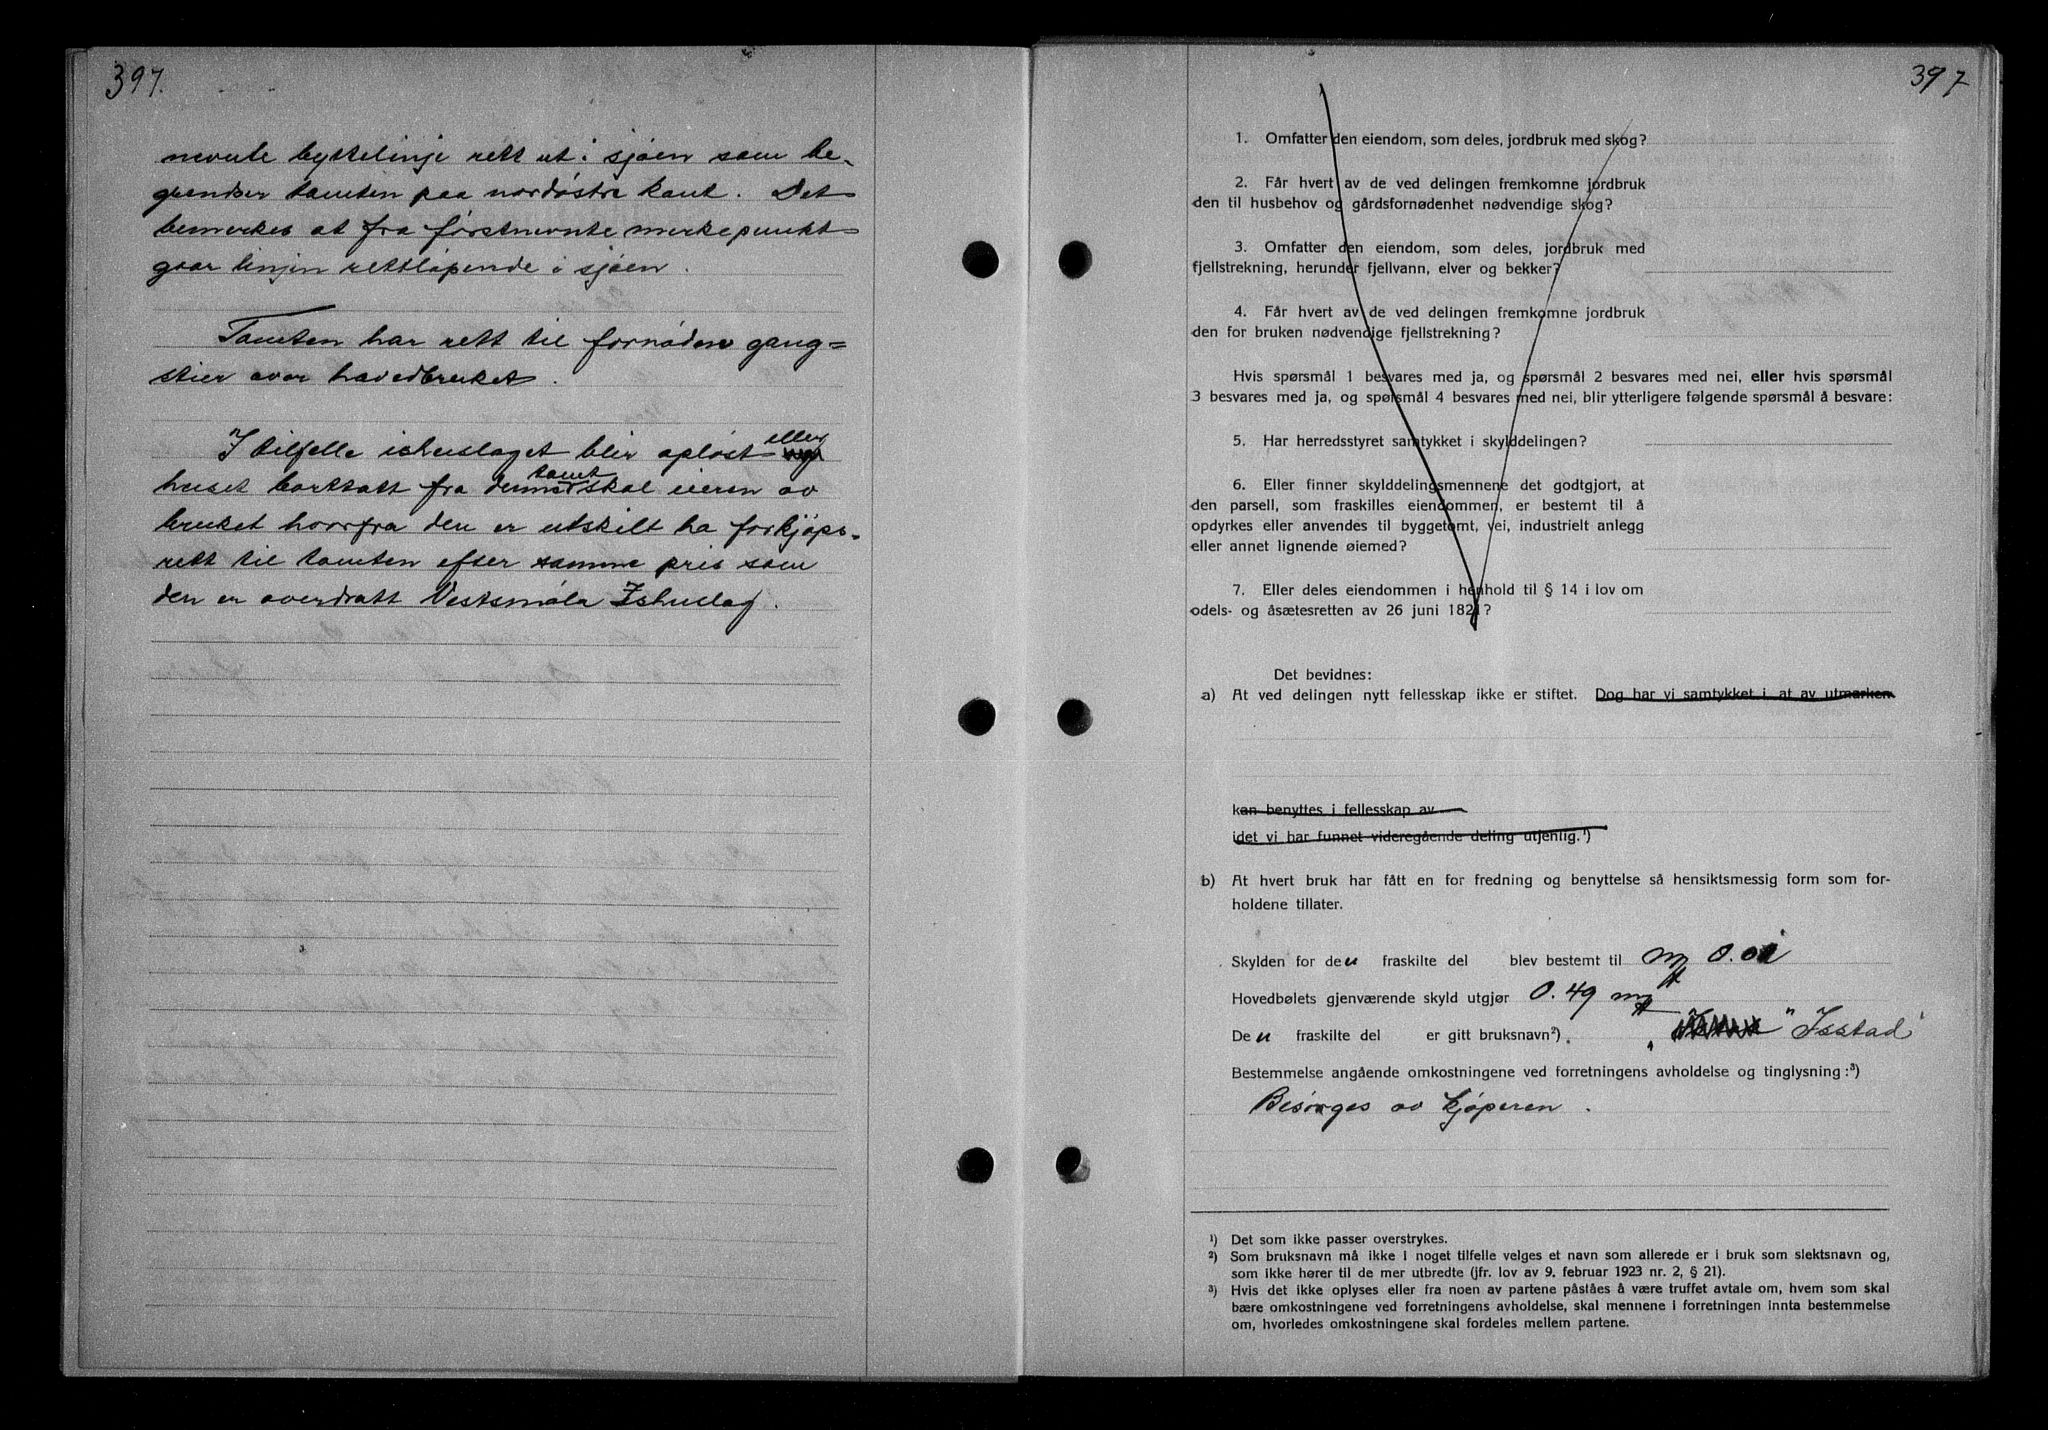 397.
nevnte byttelinje rett ut i sjøen som be-
grenser tomten paa nordøstre kant. Det
bemerkes at fra førstnevnte merkepunkt
gaar linjen rettløpende i sjøen.
Tomten har rett til fornøden gang=
stier over hovedbruket.
I tilfelle ishuslaget blir opløst eller
huset borttatt fra denne tomt skal eieren av
bruket hvorfra den er utskilt ha forkjøps-
rett til tomten efter samme pris som
den er overdratt Vestsmøla Ishuslag.
397
1. Omfatter den eiendom, som deles, jordbruk med skog?
2. Får hvert av de ved delingen fremkomne jordbruk
den til husbehov og gårdsfornødenhet nødvendige skog?
3. Omfatter den eiendom, som deles, jordbruk med
fjellstrekning, herunder fjellvann, elver og bekker?
4. Får hvert av de ved delingen fremkomne jordbruk
den for bruken nødvendige fjellstrekning?
Hvis spørsmål 1 besvares med ja, og spørsmål 2 besvares med nei, eller hvis spørsmål
3 besvares med ja, og spørsmål 4 besvares med nei, blir ytterligere følgende spørsmål å besvare:
5. Har herredsstyret samtykket i skylddelingen?
6. Eller finner skylddelingsmennene det godtgjort, at
den parsell, som fraskilles eiendommen, er bestemt til å
opdyrkes eller anvendes til byggetomt, vei, industrielt anlegg
eller annet lignende øiemed?
7. Eller deles eiendommen i henhold til § 14 i lov om
odels- og åsætesretten av 26 juni 1821?
Det bevidnes:
a) At ved delingen nytt fellesskap ikke er stiftet. Dog har vi samtykket i at av utmarken
kan benyttes i fellesskap av
idet vi har funnet videregående deling utjenlig.¹)
b) At hvert bruk har fått en for fredning og benyttelse så hensiktsmessig form som for-
holdene tillater.
Skylden for den fraskilte del blev bestemt til m 0.01
Hovedbølets gjenværende skyld utgjør 0.49 m
Den fraskilte del er gitt bruksnavn²). "Isstad"
Bestemmelse angående omkostningene ved forretningens avholdelse og tinglysning:³)
Besørges av kjøperen.
¹) Det som ikke passer overstrykes.
²) Som bruksnavn må ikke i noget tilfelle velges et navn som allerede er i bruk som slektsnavn og,
som ikke hører til de mer utbredte (jfr. lov av 9. februar 1923 nr. 2, § 21).
³) Hvis det ikke oplyses eller fra noen av partene påståes å være truffet avtale om, hvem som skal
bære omkostningene ved forretningens avholdelse, skal mennene i forretningen innta bestemmelse
om, hvorledes omkostningene skal fordeles mellem partene.